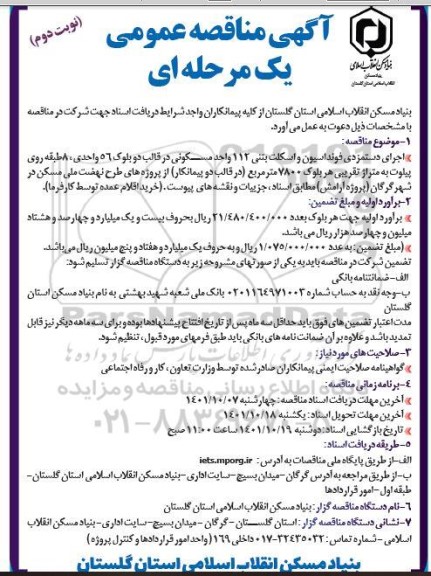 (نوبت دوم)
آگهی مناقصه عمومی
یک مرحله ای
بنیاد مسکن انقلاب اسلامی
استان گلستان
بنیاد مسکن انقلاب اسلامی استان گلستان از کلیه پیمانکاران واجد شرایط دریافت اسناد جهت شرکت در مناقصه
با مشخصات ذیل دعوت به عمل می آورد.
۱-موضوع مناقصه:
اجرای دستمزدی فونداسیون و اسکلت بتنی ۱۱۲ واحد مسکونی در قالب دو بلوک ۵۶ واحدی، ۸طبقه روی
پیلوت به متراژ تقریبی هر بلوک ۷۸۰۰ مترمربع (در قالب دو پیمانکار) از پروژه های طرح نهضت ملی مسکن در
شهر گرگان (پروژه آرامش) مطابق اسناد، جزییات و نقشه های پیوست. (خرید اقلام عمده توسط کارفرما).
۲-برآورد اولیه و مبلغ تضمین:
برآورد اولیه جهت هر بلوک بعدد ۲۱/۴۸۰/۴۰۰/۰۰۰ ریال بحروف بیست و یک میلیارد و چهارصد و هشتاد
میلیون و چهارصد هزار ریال می باشد.
(مبلغ تضمین: به عدد ۱/۰۷۵/۰۰۰/۰۰۰ ریال و به حروف یک میلیارد و هفتاد و پنج میلیون ریال می باشد.
تضمین شرکت در مناقصه باید به یکی از صورتهای مشروحه زیر به دستگاه مناقصه گزار تسلیم شود:
الف-ضمانتنامه بانکی
ب-وجه نقد به حساب شماره ۰۲۰۱۱۶۴۹۷۱۰۰۳ بانک ملی شعبه شهید بهشتی به نام بنیاد مسکن استان
گلستان
مدت اعتبار تضمین های فوق باید حداقل سه ماه پس از تاریخ افتتاح پیشنهادها بوده و برای سه ماهه دیگر نیز قابل
تمدید باشد و علاوه بر آن ضمانت نامه های بانکی باید طبق فرمهای مورد قبول، تنظیم شود.
۳-صلاحیت های مورد نیاز:
گواهینامه صلاحیت ایمنی پیمانکاران صادر شده توسط وزارت تعاون، کار و رفاه اجتماعی
۴-برنامه زمانی مناقصه:
آخرین مهلت دریافت اسناد مناقصه: چهارشنبه ۱۴۰۱/۱۰/۰۷
آخرین مهلت تحویل اسناد: یکشنبه ۱۴۰۱/۱۰/۱۸
تاریخ بازگشایی اسناد: دوشنبه ۱۴۰۱/۱۰/۱۹ ساعت ۱۱:۰۰ صبح
۵-طریقه دریافت اسناد:
الف-از طریق پایگاه ملی مناقصات به آدرس: iets.mporg.ir
ب-از طریق مراجعه به آدرس گرگان-میدان بسیج-سایت اداری-بنیاد مسکن انقلاب اسلامی استان گلستان-
طبقه اول-امور قراردادها
۶-نام دستگاه مناقصه گزار: بنیاد مسکن انقلاب اسلامی استان گلستان
۷-نشانی دستگاه مناقصه گزار: استان گلستان-گرگان-میدان بسیج-سایت اداری-بنیاد مسکن انقلاب
اسلامی-شماره تماس: ۳۲۴۳۵۰۳۲-۰۱۷ داخلی ۱۶۹ (واحد امور قراردادها و کنترل پروژه)
بنیاد مسکن انقلاب اسلامی استان گلستان